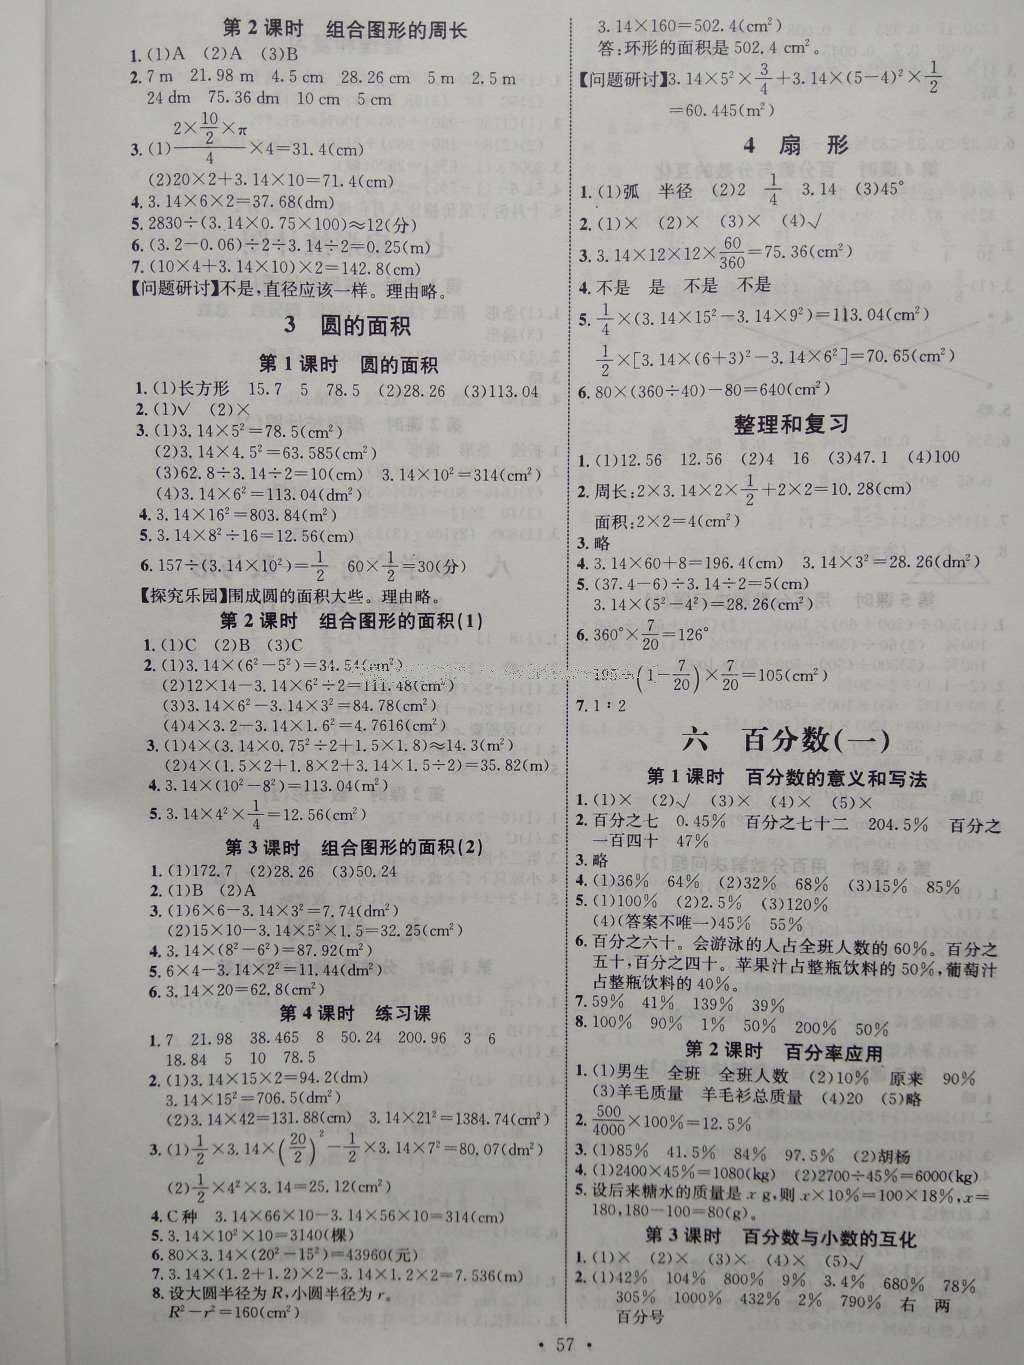 第2课时 组合图形的周长
1.(1)A (2)A (3)B
2.7 m 21.98 m 4.5 cm 28.26 cm 5 m 2.5 m
24 dm 75.36 dm 10 cm 5 cm
3.(1)\frac{2×\frac{10}{2}×π}{4}×4=31.4(cm)
(2)20×2+3.14×10=71.4(cm)
4.3.14×6×2=37.68(dm)
5.2830÷(3.14×0.75×100)≈12(分)
6.(3.2−0.06)÷2÷3.14÷2=0.25(m)
7.(10×4+3.14×10)×2=142.8(cm)
【问题研讨】不是,直径应该一样。理由略。
3 圆的面积
第1课时 圆的面积
1.(1)长方形 15.7 5 78.5 (2)28.26 (3)113.04
2.(1)√ (2)×
3.(1)3.14×5²=78.5(cm²)
(2)3.14×4.5²=63.585(cm²)
(3)62.8÷3.14÷2=10(cm) 3.14×10²=314(cm²)
(4)3.14×6²=113.04(dm²)
4.3.14×16²=803.84(m²)
5.3.14×8²÷16=12.56(cm)
6.157÷(3.14×10²)=\frac{1}{2} 60×\frac{1}{2}=30(分)
【探究乐园】围成圆的面积大些。理由略。
第2课时 组合图形的面积(1)
1.(1)C (2)B (3)C
2.(1)3.14×(6²−5²)=34.54(cm²)
(2)12×14−3.14×6²÷2=111.48(cm²)
(3)3.14×6²−3.14×3²=84.78(cm²)
(4)4×3.2−3.14×1.6²=4.7616(cm²)
3.(1)4×(3.14×0.75²÷2+1.5×1.8)≈14.3(m²)
(2)4×(1.5×2+1.8×2+3.14×1.5÷2)=35.82(m)
4.3.14×(10²−8²)=113.04(m²)
5.3.14×4²×\frac{1}{4}=12.56(cm²)
第3课时 组合图形的面积(2)
1.(1)172.7 (2)28.26 (3)50.24
2.(1)B (2)A
3.(1)6×6−3.14×3²=7.74(dm²)
(2)15×10−3.14×5²×1.5=32.25(cm²)
4.3.14×(8²−6²)=87.92(m²)
5.6×4−3.14×2²=11.44(dm²)
6.3.14×20=62.8(cm²)
第4课时 练习课
1.7 21.98 38.465 8 50.24 200.96 3 6
18.84 5 10 78.5
2.(1)3.14×15×2=94.2(dm)
3.14×15²=706.5(dm²)
(2)3.14×42=131.88(cm) 3.14×21²=1384.74(cm²)
3.(1)\frac{1}{2}×3.14×(\frac{20}{2})²−\frac{1}{2}×3.14×7²=80.07(dm²)
(2)\frac{1}{2}×4²×3.14=25.12(cm²)
4.C种 3.14×66×10−3.14×56×10=314(cm)
5.3.14×10²×10=3140(棵)
6.80×3.14×(20²−15²)=43960(元)
7.3.14×(1.2+1.2)×2−3.14×1.2×2=7.536(m)
8.设大圆半径为R,小圆半径为r。
R²−r²=160(cm²)
3.14×160=502.4(cm²)
答:环形的面积是502.4 cm²。
【问题研讨】3.14×5²×\frac{3}{4}+3.14×(5−4)²×\frac{1}{2}
=60.445(m²)
4 扇 形
1.(1)弧 半径 (2)2 \frac{1}{4} 3.14 (3)45°
2.(1)× (2)× (3)× (4)√
3.3.14×12×12×\frac{60}{360}=75.36(cm²)
4.不是 是 不是 不是
5.\frac{1}{4}×(3.14×15²−3.14×9²)=113.04(cm²)
\frac{1}{2}×[3.14×(6+3)²−3.14×6²]=70.65(cm²)
6.80×(360÷40)−80=640(cm²)
整理和复习
1.(1)12.56 12.56 (2)4 16 (3)47.1 (4)100
2.周长:2×3.14×2×\frac{1}{2}+2×2=10.28(cm)
面积:2×2=4(cm²)
3.略
4.3.14×60+8=196.4(cm) 3.14×3²=28.26(dm²)
5.(37.4−6)÷3.14÷2=5(cm)
3.14×(5²−4²)=28.26(cm²)
6.360°×\frac{7}{20}=126°
195÷(1−\frac{7}{20})×\frac{7}{20}=105(cm²)
7.1∶2
六 百分数(一)
第1课时 百分数的意义和写法
1.(1)× (2)√ (3)× (4)× (5)×
2.百分之七 0.45% 百分之七十二 204.5% 百分之
一百四十 47%
3.略
4.(1)36% 64% (2)32% 68% (3)15% 85%
5.(1)100% (2)2.5% (3)120%
(4)(答案不唯一)45% 55%
6.百分之六十。会游泳的人占全班人数的60%。百分之
五十,百分之四十。苹果汁占整瓶饮料的50%,葡萄汁
占整瓶饮料的40%。
7.59% 41% 139% 39%
8.100% 90% 1% 50% 200% 50%
第2课时 百分率应用
1.(1)男生 全班 全班人数 (2)10% 原来 90%
(3)羊毛质量 羊毛衫总质量 (4)20 (5)略
2.\frac{500}{4000}×100%=12.5%
3.(1)85% 41.5% 84% 97.5% (2)胡杨
4.(1)2400×45%=1080(kg) (2)2700÷45%=6000(kg)
5.设后来糖水的质量是x g,则x×10%=100×18%,x=
180,180−100=80(g)。
第3课时 百分数与小数的互化
1.(1)× (2)× (3)× (4)× (5)√
2.(1)42% 104% 800% 9% 3.4% 680% 78%
305% 1000% 432% 2% 790% 右 两
百分号
• 57 •